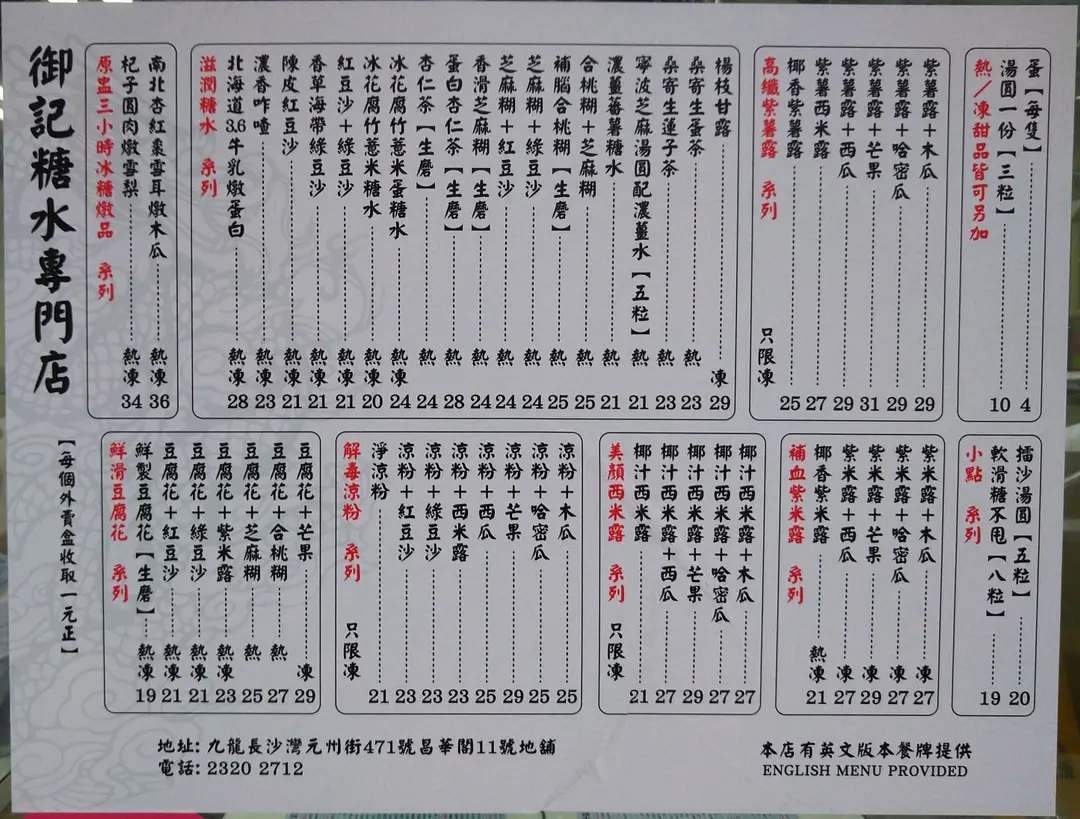 御記糖水專門店
【每個外賣盒收取一元正】
原盅三小時冰糖燉品 系列
杞子圓肉燉雪梨 熱凍 34
南北杏紅棗雪耳燉木瓜 熱凍 36
滋潤糖水 系列
北海道3.6牛乳燉蛋白 熱凍 28
濃香咋喳 熱凍 23
陳皮紅豆沙 熱凍 21
香草海帶綠豆沙 熱凍 21
紅豆沙+綠豆沙 熱凍 21
冰花腐竹薏米糖水 熱凍 20
冰花腐竹薏米蛋糖水 熱凍 24
杏仁茶【生磨】 熱 24
蛋白杏仁茶【生磨】 熱 28
香滑芝麻糊【生磨】 熱 24
芝麻糊+紅豆沙 熱 24
芝麻糊+綠豆沙 熱 24
補腦合桃糊【生磨】 熱 25
合桃糊+芝麻糊 熱 25
濃薑蕃薯糖水 熱 21
寧波芝麻湯圓配濃薑水【五粒】 熱 21
桑寄生蓮子茶 熱 23
桑寄生蛋茶 熱 23
楊枝甘露 凍 29
高纖紫薯露 系列 只限凍
椰香紫薯露 25
紫薯西米露 27
紫薯露+西瓜 29
紫薯露+芒果 31
紫薯露+哈密瓜 29
紫薯露+木瓜 29
熱/凍甜品皆可另加
湯圓一份【三粒】 10
蛋【每隻】 4
鮮滑豆腐花 系列
鮮製豆腐花【生磨】 熱凍 19
豆腐花+紅豆沙 熱凍 21
豆腐花+綠豆沙 熱凍 21
豆腐花+紫米露 熱凍 23
豆腐花+芝麻糊 熱 25
豆腐花+合桃糊 熱 27
豆腐花+芒果 凍 29
解毒涼粉 系列 只限凍
淨涼粉 21
涼粉+紅豆沙 23
涼粉+綠豆沙 23
涼粉+西米露 23
涼粉+西瓜 25
涼粉+芒果 29
涼粉+哈密瓜 25
涼粉+木瓜 25
美顏西米露 系列 只限凍
椰汁西米露 21
椰汁西米露+西瓜 27
椰汁西米露+芒果 29
椰汁西米露+哈密瓜 27
椰汁西米露+木瓜 27
補血紫米露 系列
椰香紫米露 熱凍 21
紫米露+西瓜 凍 27
紫米露+芒果 凍 29
紫米露+哈密瓜 凍 27
紫米露+木瓜 凍 27
小點 系列
軟滑糖不甩【八粒】 19
擂沙湯圓【五粒】 20
地址: 九龍長沙灣元州街471號昌華閣11號地舖
電話: 2320 2712
本店有英文版本餐牌提供
ENGLISH MENU PROVIDED